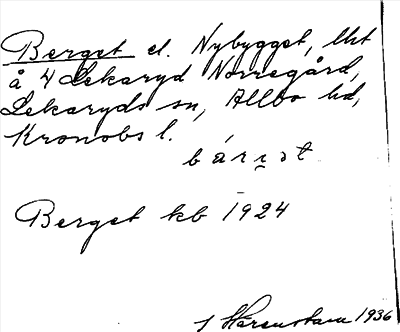 Berget el. Nybygget, lht
å 4 Lekaryd Norregård,
Lekaryds sn, Allbo hd,
Kronobs l.
bárṛət
Berget kb 1924
1936